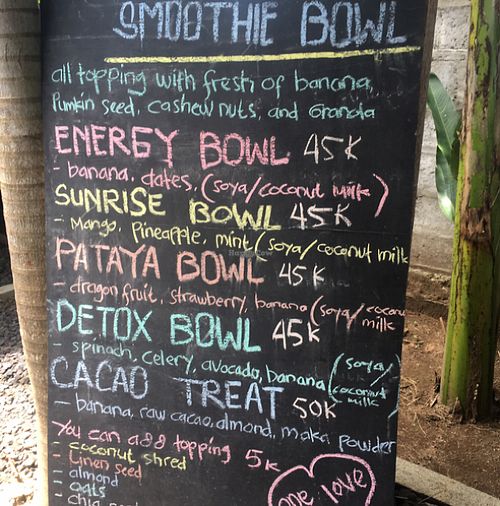 SMOOTHIE BOWL
all topping with fresh of banana,
Pumkin seed, cashew nuts, and Granola
ENERGY BOWL 45K
- banana, dates, (soya/coconut milk)
SUNRISE BOWL 45K
- Mango, Pineapple, mint (soya/coconut milk
PATAYA BOWL 45K
- dragon fruit, strawberry, banana (soya/coconu
milk
DETOX BOWL 45K
- spinach, celery, avocado, banana (soya/
coconut
milk)
CACAO TREAT 50K
- banana, raw cacao, almond, maka powder
You can add topping 5K
- coconut shred
- Linen seed
- almond
- oats
- chia
one love
HappyCow